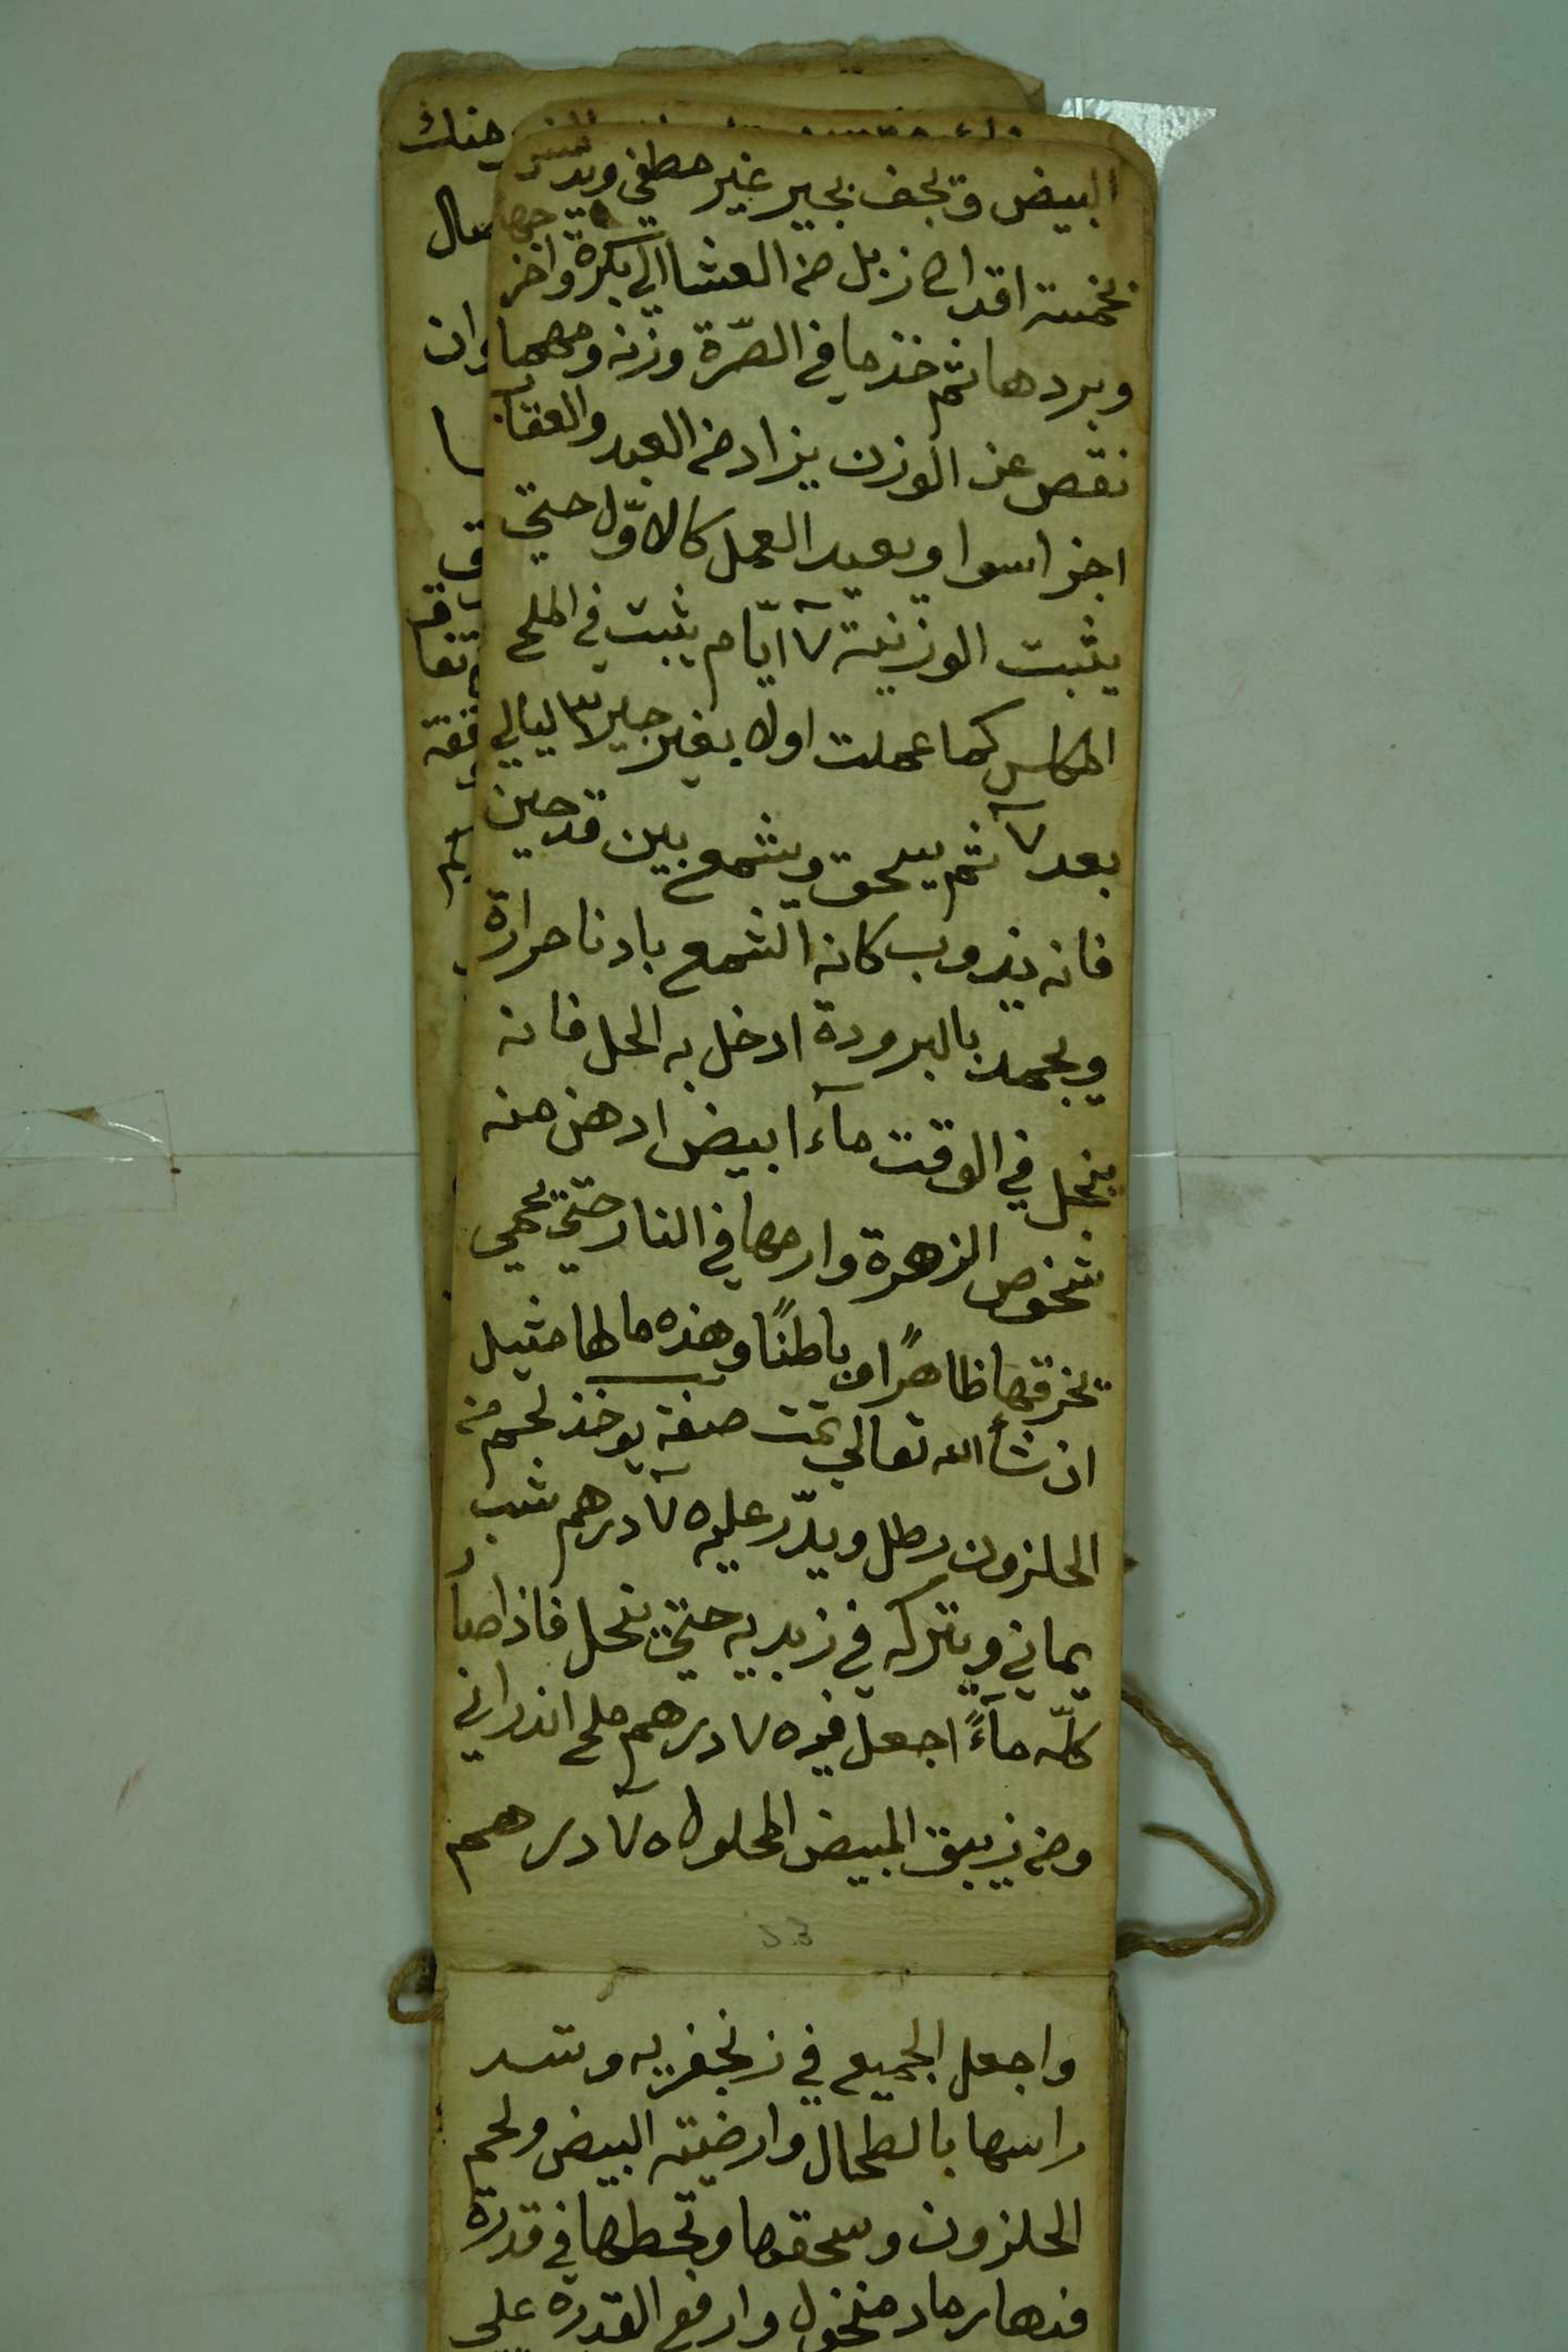 البيض وتجف بجير غير مطفي ويدس
نخمسة اقداح زبل من العشا الي بكرة واخرجها
وبردها ثم خذ ما في الصّرة وزنه ومهما
نقص عن الوزن يزاد من العبد والعقاب
اجزا سوا ويعيد العمل كالاوّل حتي
يثبت الوزنية ٧ ايّام يثبت في الملح
المكلس كما عملت اولا بغير جير ٣ ليالي
بعد ٧ ثم يسحق ويشمع بين قدحين
فانه يذوب كانه الشمع بادنا حرارة
ويجمد بالبرودة ادخل به الحل فانه
ينحل في الوقت مآء ابيض ادهن منه
شخوص الزهرة وارمها في النار حتي تحمي
تخرقها ظاهرًا وباطنًا وهذه ما لها مثيل
ان شأ الله تعالي تمت صفة يوخذ لحم من
الحلزون رطل ويدّر عليه ٧ درهم شب
يماني ويتركه في زبديه حتي ينحل فاذا صار
كلّه مآءً اجعل فيه ٧ درهم ملح اندراني
ومن زيبق المبيض المحلول ٧ درهم
واجعل الجميع في زنجفريه وتسد
راسها بالطحال وارضيته البيض ولحم
الحلزون وسحقها وتحطها في قدرة
فيها رماد منخول وارفع القدرة علي